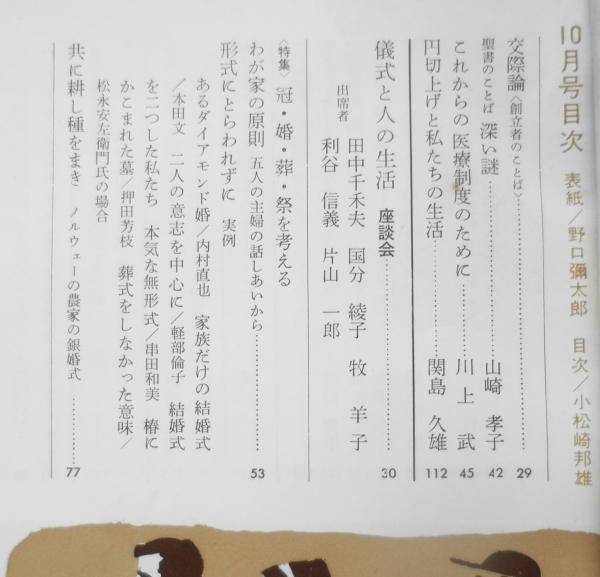 10月号目次 表紙/野口彌太郎 目次/小松崎邦雄
交際論〈創立者のことば〉 29
聖書のことば 深い謎 山崎 孝子 42
これからの医療制度のために 川上 武 45
円切上げと私たちの生活 関島 久雄 112
儀式と人の生活 座談会 30
出席者 田中千禾夫 国分 綾子 牧 羊子
利谷 信義 片山 一郎
〈特集〉 冠・婚・葬・祭を考える
わが家の原則 五人の主婦の話しあいから 53
形式にとらわれずに 実例
あるダイアモンド婚/内村直也 家族だけの結婚式
/本田文 二人の意志を中心に/軽部倫子 結婚式
を二つした私たち 本気な無形式/串田和美 椿に
かこまれた墓/押田芳枝 葬式をしなかった意味/
松永安左衛門氏の場合
共に耕し種をまき ノルウェーの農家の銀婚式 77